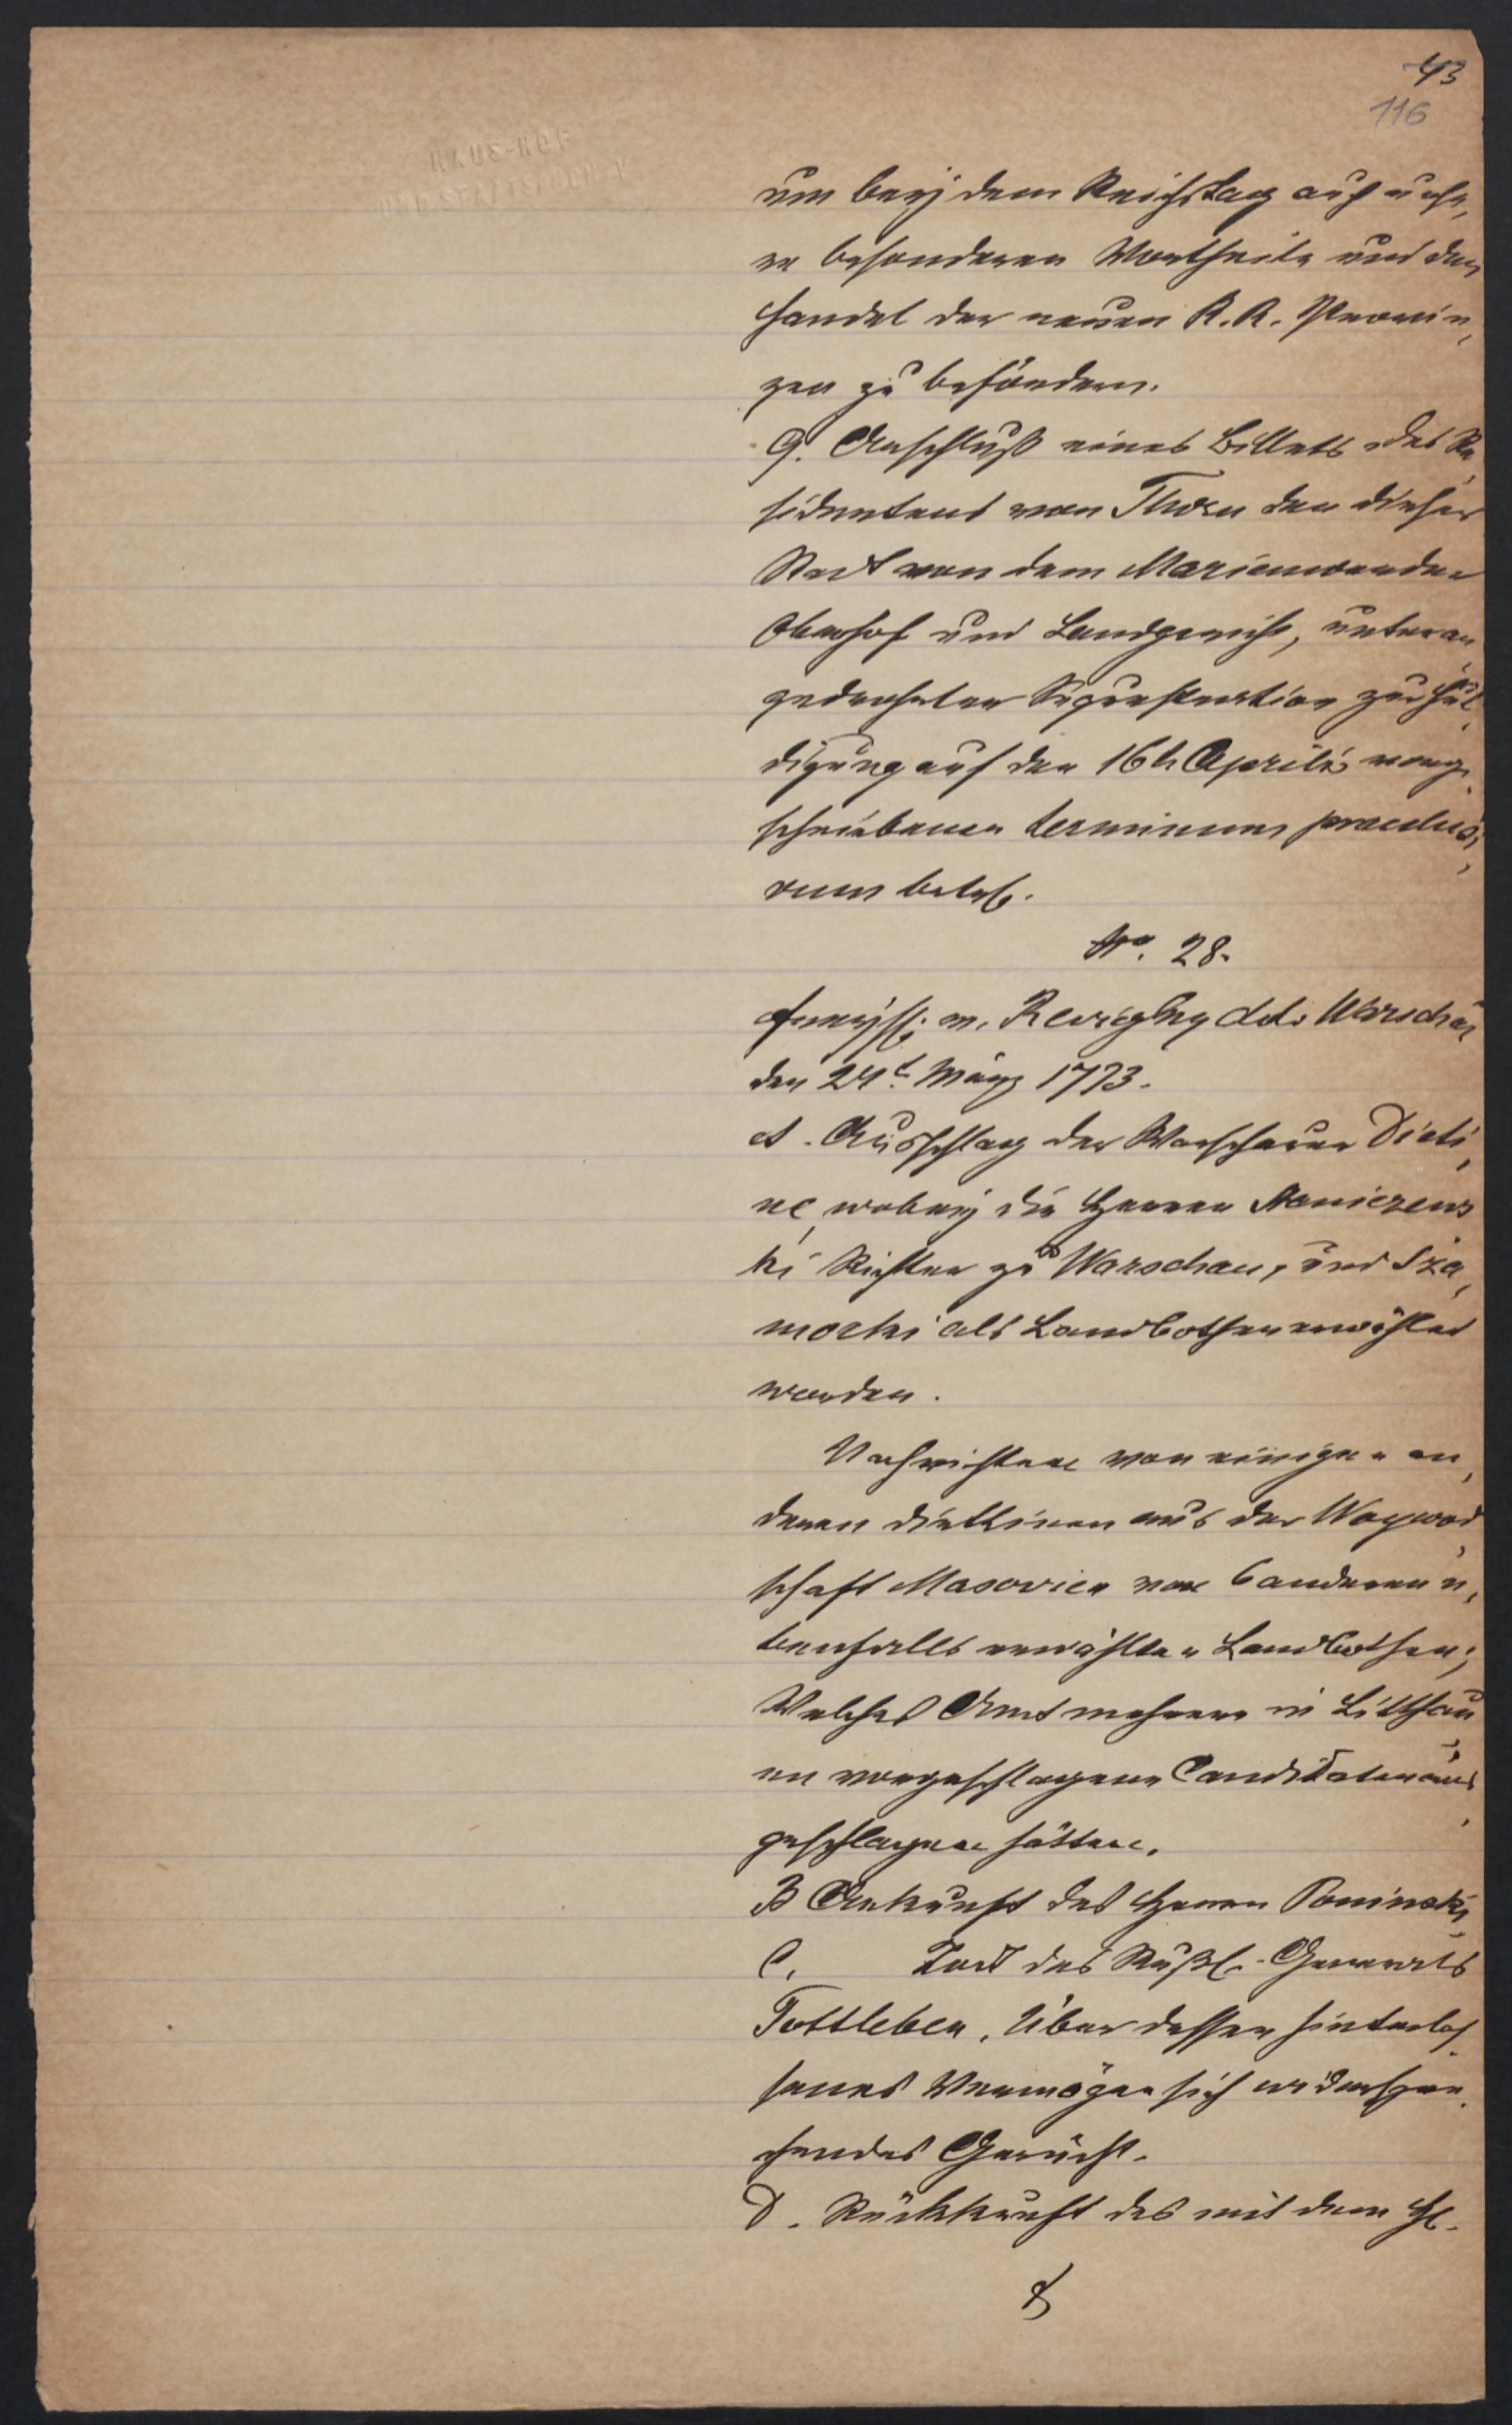 43
116
HAUS-HOF
UND STAATSARCHIV
um beÿ dem Reichstag auf unse,
re besonderen Vortheile und den
Handel der neuen K. K. Provin,
zen zu befördern.
G. Anschluß eines Billets des Re,
sidentens von Thorn den dieser
Stadt von dem Marienwerder
Oberhof und Landgericht, unter an
gedrohter zur Hul,
digung auf den 16t. Aprilis vorge,
schriebenen terminum praeclusi,
vum betrf.
No. 28.
v. Reviczky ddo. Warschau
den 24t. März 1773.
A. Ausschlag der Warschauer Dieti,
ne, wobeÿ die Herren
ki Richter zu Warschau, und Sza,
mocki als Landbothen erwählet
worden.
Nachrichten von einigen an,
deren Diettinen aus der Woywod,
schaft Masovien von 6 anderen e,
benfalls erwählten Landbothen;
Welches Amt mehrere in Litthau,
en vorgeschlagene Candidaten aus,
geschlagen hätten.
B Ankunft des Herrn Poninski,
C. Tod des Rußl. Generals
Tottleben. Über dessen hinterlas,
senes Vermögen sich widerspre,
chendes Gerücht.
D. Rückkunft des mit dem H.